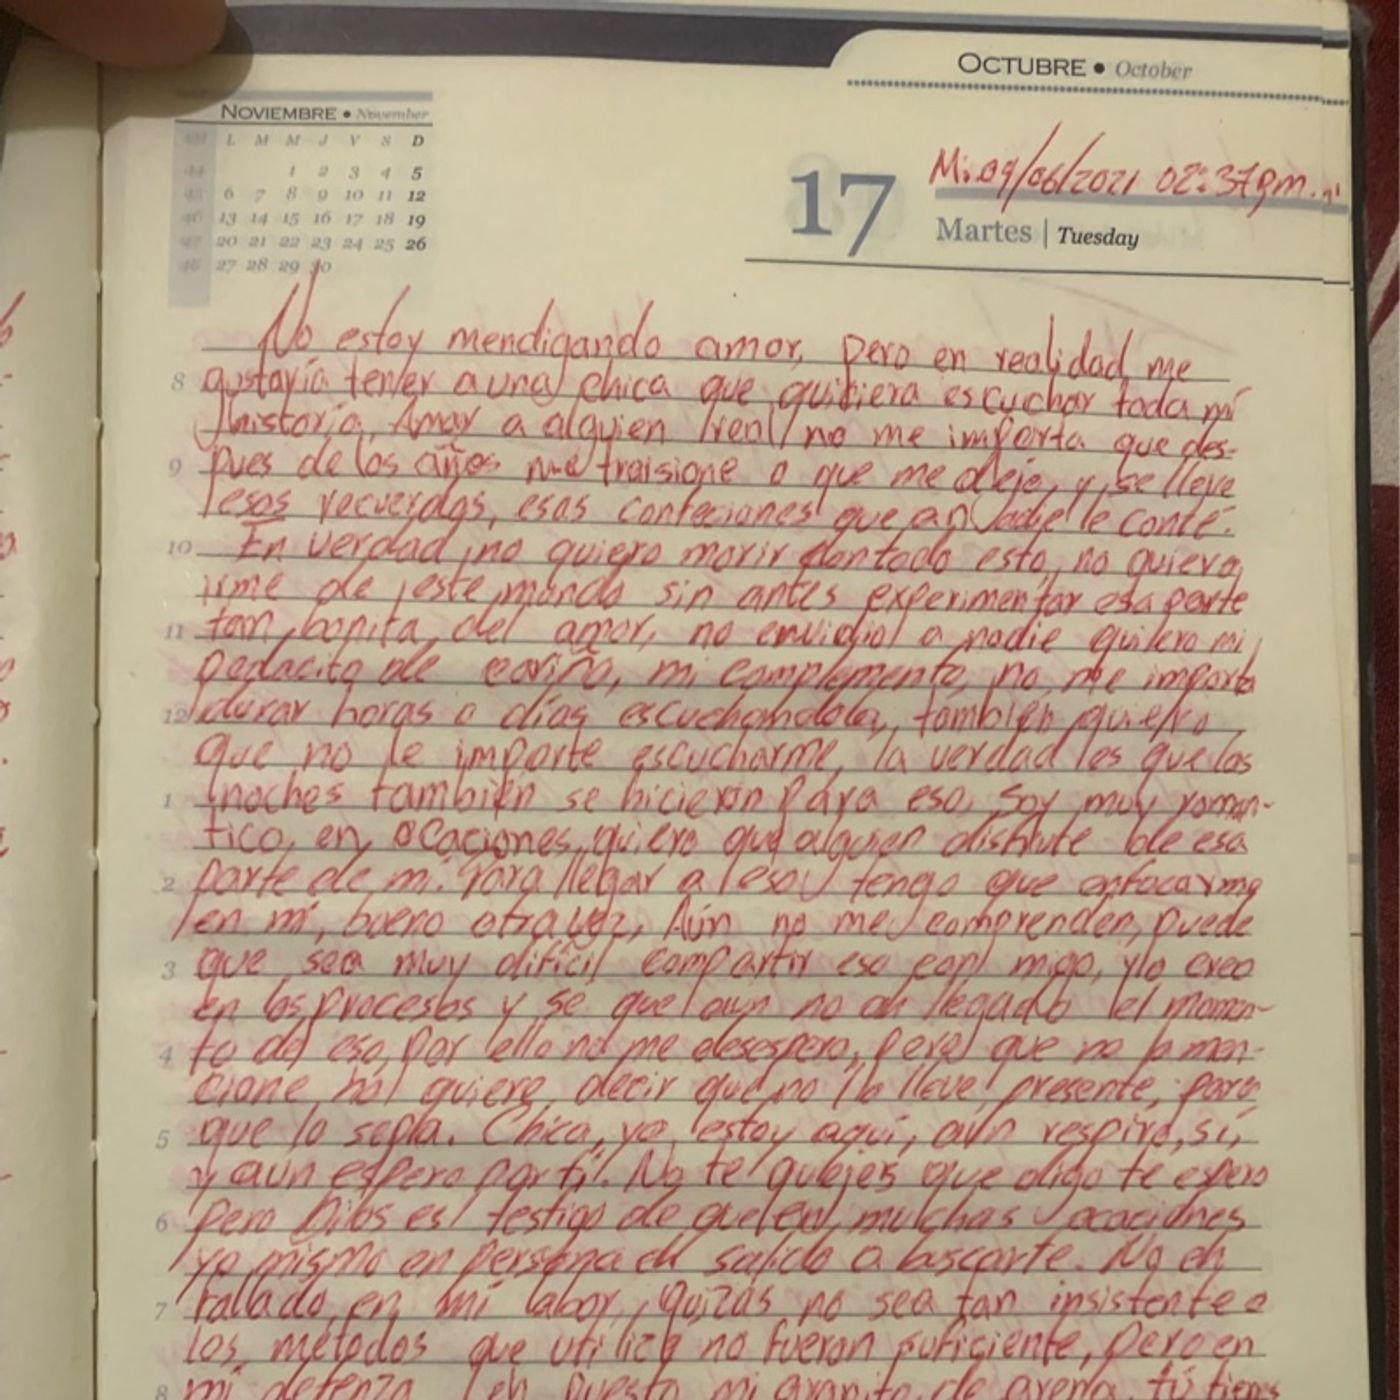 OCTUBRE • October
NOVIEMBRE • November
L M M J V S D
44 1 2 3 4 5
45 6 7 8 9 10 11 12
46 13 14 15 16 17 18 19
47 20 21 22 23 24 25 26
27 28 29 30
17
Mi.09/06/2021 02:37pm.
Martes | Tuesday
No estoy mendigando amor, pero en realidad me
8 gustaría tener a una chica que quisiera escuchar toda mi
historia, Amar a alguien real, no me importa que des-
9 pues de los años me traisione o que me deje, y se lleve
esos recuerdos, esas confeciones que a nadie le conté.
10 En verdad, no quiero morir con todo esto, no quiero
irme de este mundo sin antes experimentar esa parte
11 tan bonita del amor, no envidio a nadie quiero mi
pedacito de cariño, mi complemento, no me importa
12 durar horas o días escuchandola, también quiero
que no le importe escucharme, la verdad es que las
1 noches también se hicieron para eso, Soy muy roman-
tico, en ocaciones, quiero que alguien disfrute de esa
2 parte de mi. Para llegar a eso tengo que enfocarme
en mi, bueno otra vez, Aún no me comprenden, puede
3 que sea muy difícil compartir eso con migo, yo creo
en los procesos y se que aun no ah llegado el momen-
4 to de eso, por ello no me desespero, pero que no lo men-
cione no quiere decir que no lo lleve presente, para
5 que lo sepla. Chica, yo estoy aquí, aún respiro, si,
y aún espero por ti. No te quejes que digo te espero
6 pero Dios es testigo de que en muchas ocaciones
yo mismo en persona eh salido a buscarte. No eh
7 fallado en mi labor, Quizás no sea tan insistente o
los metodos que utilice no fueron suficiente, pero en
8 mi defenza eh puesto mi granito de arena, tú tienes